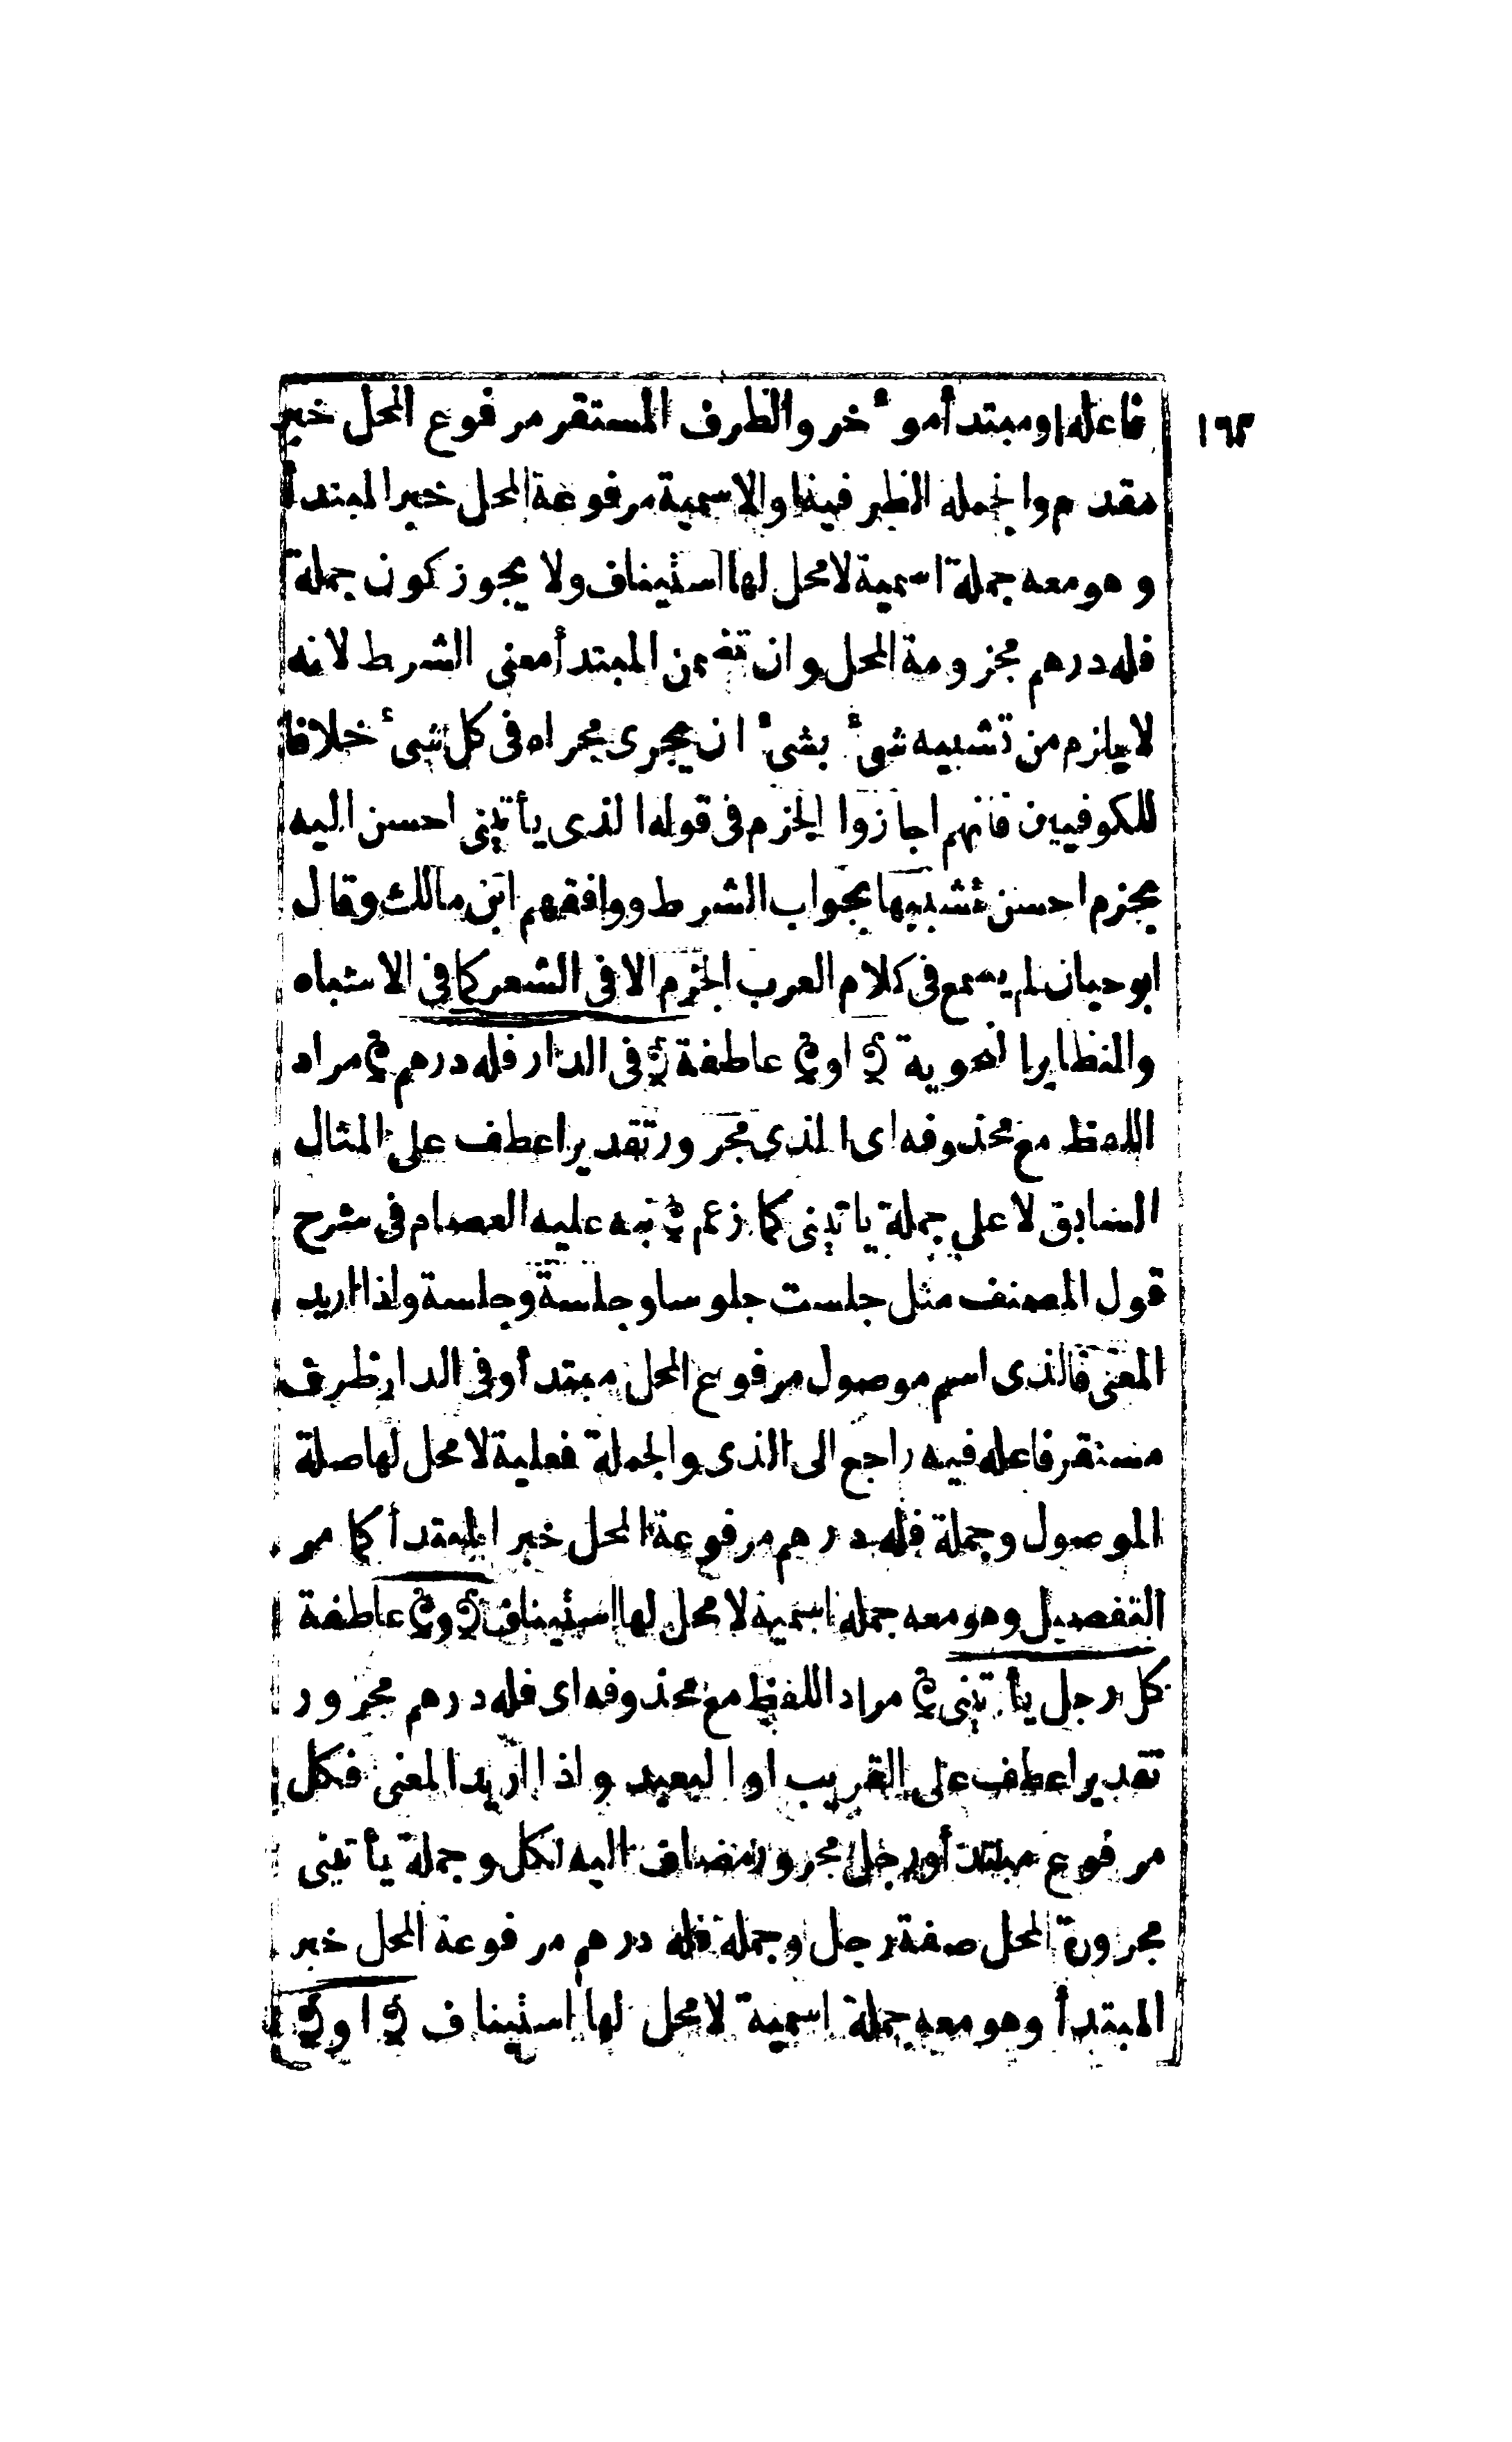 ١٦٢
فاعله او مبتدأ مؤخر والظرف المستقر مرفوع المحل خبر
مقدم والجملة الظرفية او الاسمية مرفوعة المحل خبر المبتدأ
وهو معه جملة اسمية لا محل لها استيناف ولا يجوز كون جملة
فله درهم مجزومة المحل وان تضمن المبتدأ معنى الشرط لانه
لا يلزم من تشبيه شئ بشئ ان يجرى مجراه فى كل شئ خلافا
للكوفيين فانهم اجازوا الجزم فى قوله الذى يأتينى احسن اليه
بجزم احسن تشبيها بجواب الشرط ووافقهم ابن مالك وقال
ابو حيان لم يسمع فى كلام العرب الجزم الا فى الشعر كما فى الاشباه
والنظاير النحوية ﴿ او ﴾ عاطفة ﴿ فى الدار فله درهم ﴾ مراد
اللفظ مع محذوفه اى الذى مجرور تقديرا عطف على المثال
السابق لا على جملة ياتينى كما زعم ﴾ نبه عليه العصام فى شرح
قول المصنف مثل جلست جلوسا وجلسة وجلسة واذا اريد
المعنى فالذى اسم موصول مرفوع المحل مبتدأ وفى الدار ظرف
مستقر فاعله فيه راجع الى الذى والجملة فعلية لا محل لها صلة
الموصول وجملة فله درهم مرفوعة المحل خبر المبتدأ كما مر
التفصيل وهو معه جملة اسمية لا محل لها استيناف ﴿ و ﴾ عاطفة
كل رجل يأتينى ﴾ مراد اللفظ مع محذوفه اى فله درهم مجرور
تقديرا عطف على القريب او البعيد واذا اريد المعنى فكل
مرفوع مبتدأ ورجل مجرور مضاف اليه لكل وجملة يأتينى
مجرورة المحل صفة رجل وجملة فله درهم مرفوعة المحل خبر
المبتدأ وهو معه جملة اسمية لا محل لها استيناف ﴿ او ﴾